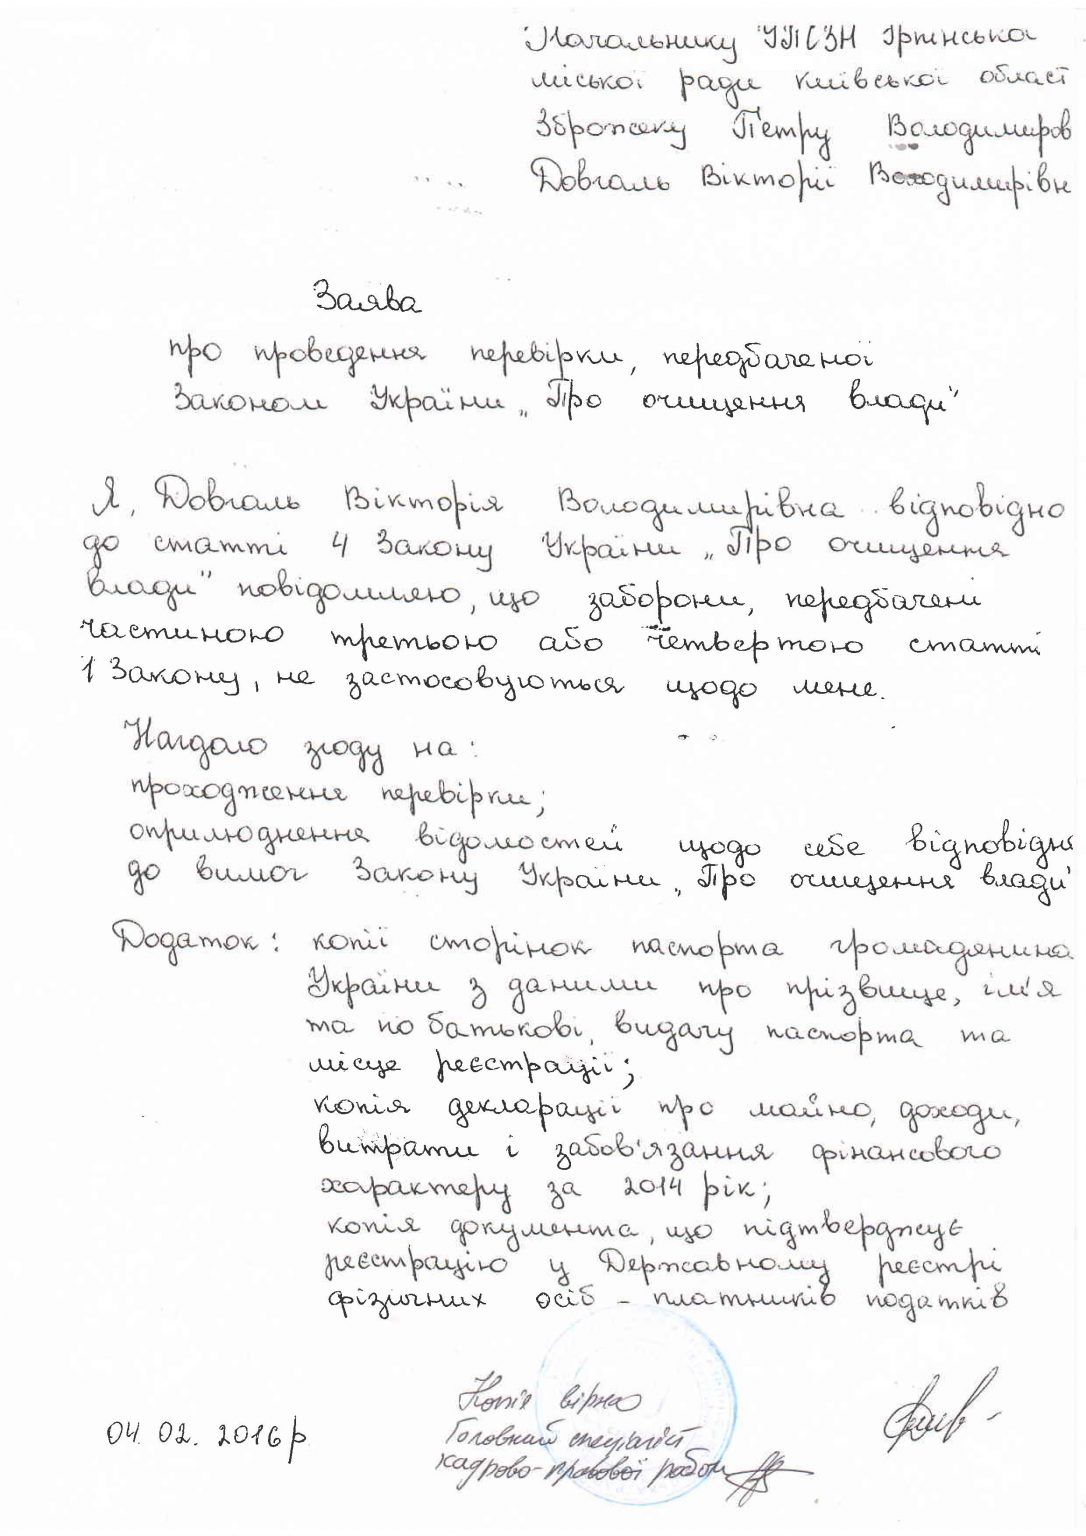 Начальнику УПСЗН Ірпінсько
міської ради Київської област
Зброжеку Петру Володимиров
Довгаль Вікторії Володимирівн
Заява
про проведення перевірки, передбаченої
Законом України „Про очищення влади"
Я, Довгаль Вікторія Володимирівна відповідно
до статті 4 Закону України „Про очищення
влади" повідомляю, що заборони, передбачені
частиною третьою або четвертою статті
1 Закону, не застосовуються щодо мене.
Нагдаю згоду на:
проходження перевірки;
оприлюднення відомостей щодо себе відповідн
до вимог Закону України „Про очищення влади"
Додаток: копії сторінок паспорта громадянина
України з даними про прізвище, ім'я
та по батькові, видачу паспорта та
місце реєстрації;
копія декларації про майно, доходи,
витрати і забов'язання фінансового
характеру за 2014 рік;
копія документа, що підтверджує
реєстрацію у Державному реєстрі
фізичних осіб – платників податків
Копія вірна
04. 02. 2016 р
Головний спеціаліст
кадрово-правової роботи